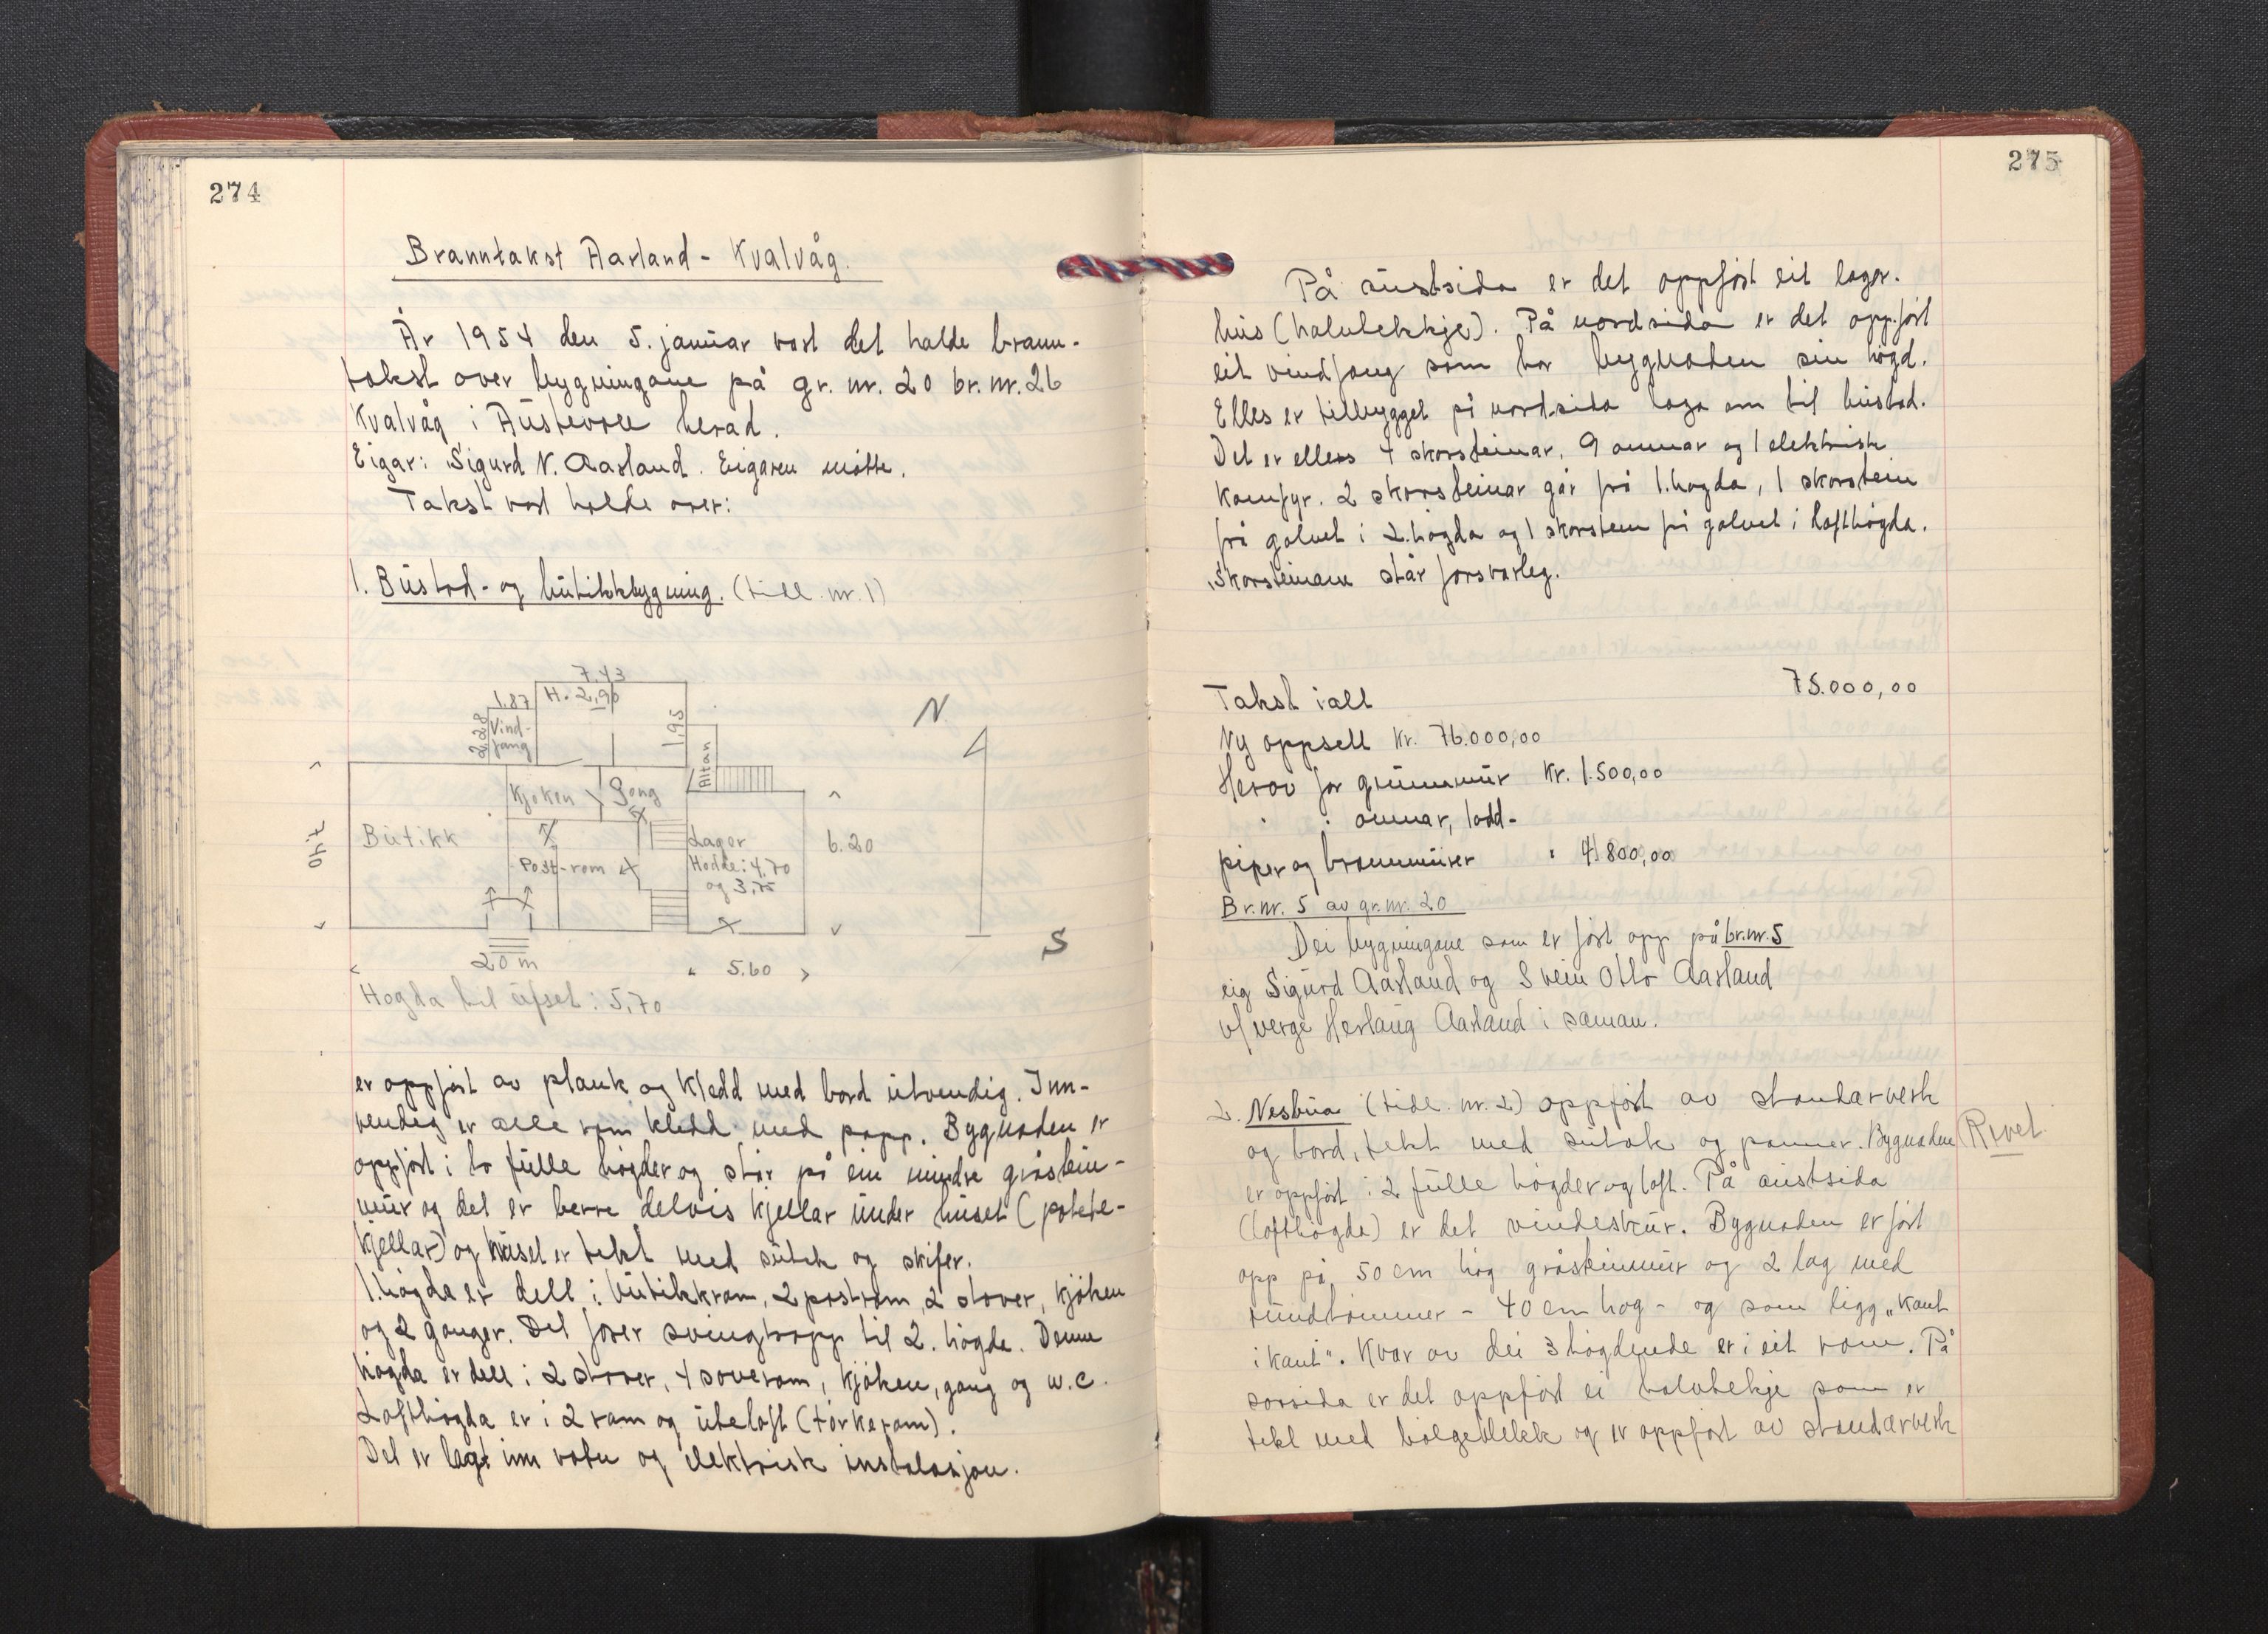 274
Branntakst Aarland - Kvalvåg.
År 1954 den 5. januar vart det halde brann-
takst over bygningane på gr. nr. 20 br. nr. 26
Kvalvåg i Austevoll herad.
Eigar: Sigurd N. Aarland. Eigaren møtte.
Takst vart halde over:
1. Bustad- og butikkbygning. (till. nr. 1)
7.43
H. 2,90
1.87
2.28
Vind-
fang
1.95
Altan
Kjøken
Gong
Butikk
7,40
Post-rom
Lager
Hødde: 4,70
og 3,75
6.20
N
S
20 m
5.60
Høgda til ufset: 5,70
er oppført av plank og kledd med bord utvendig. Inn-
vendig er alle rom kledd med papp. Bygnaden er
oppført i to fulle høgder og står på ein mindre gråstein-
mur og det er berre delvis kjellar under huset (potete-
kjellar) og huset er tekt med sutak og skifer.
1. høgda er delt i butikkrom, 2 postrom, 2 stover, kjøken
og 2 ganger. Det fører svingtrapp til 2. høgda. Denne
høgda er delt i 2 stover, 4 soverom, kjøken, gang og w.c.
Lofthøgda er i 2 rom og uteloft (tørkerom).
Det er lagt inn vatn og elektrisk instalasjon.
275
På austsida er det oppført eit lager-
hus (halvtekkje). På nordsida er det oppført
eit vindfang som har bygnaden sin høgd.
Elles er tilbygget på nordsida laga om til bustad.
Det er elles 4 skorsteinar, 9 omnar og 1 elektrisk
komfyr. 2 skorsteinar går frå 1. høgda, 1 skorstein
frå golvet i 2. høgda og 1 skorstein frå golvet i lofthøgda.
Skorsteinane står forsvarleg.
Takst ialt 75.000,00
Ny oppsett kr. 76.000,00
Herav for grunnmur kr. 1.500,00
" " omnar, lodd-
piper og brannmurer " 4.800,00
Br. nr. 5 av gr. nr. 20
Dei bygningane som er ført opp på br. nr. 5
eig Sigurd Aarland og Svein Otto Aarland
v/ verge Herlaug Aarland i saman.
2. Nesbua (tidl. nr. 2) oppført av standarverk
og bord, tekt med sutak og panner. Bygnaden
Rivet
er oppført i 2 fulle høgder og loft. På austsida
(lofthøgda) er det vindeskur. Bygnaden er ført
opp på 50 cm høg gråsteinmur og 2 lag med
rundtømmer - 40 cm høg - og som ligg "kant
i kant". Kvar av dei 3 høgdende er i eit rom. På
sørsida er det oppført ei halvtekje som er
tekt med bølgeblekk og er oppført av standarverk